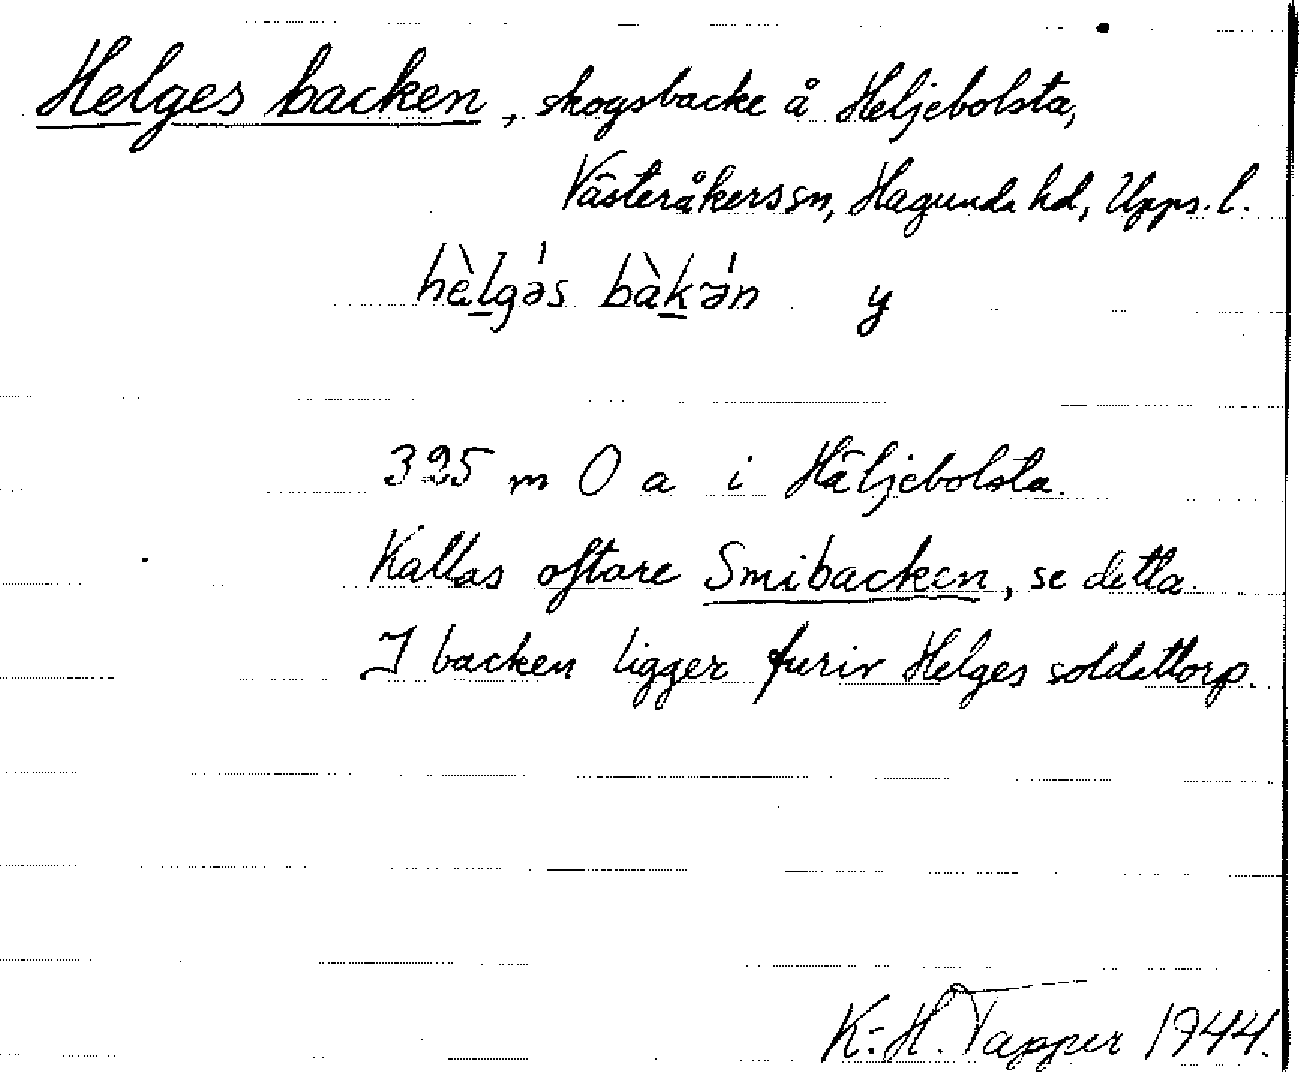 Helges backen, skogsbacke å Heljebolsta,
Västeråkers sn, Hagunda hd, Upps. l.
hèlgə́s bàkə́n y
325 m O a i Häljebolsta.
Kallas oftare Smibacken, se detta.
I backen ligger furir Helges soldattorp.
K:-H. Tapper 1944.